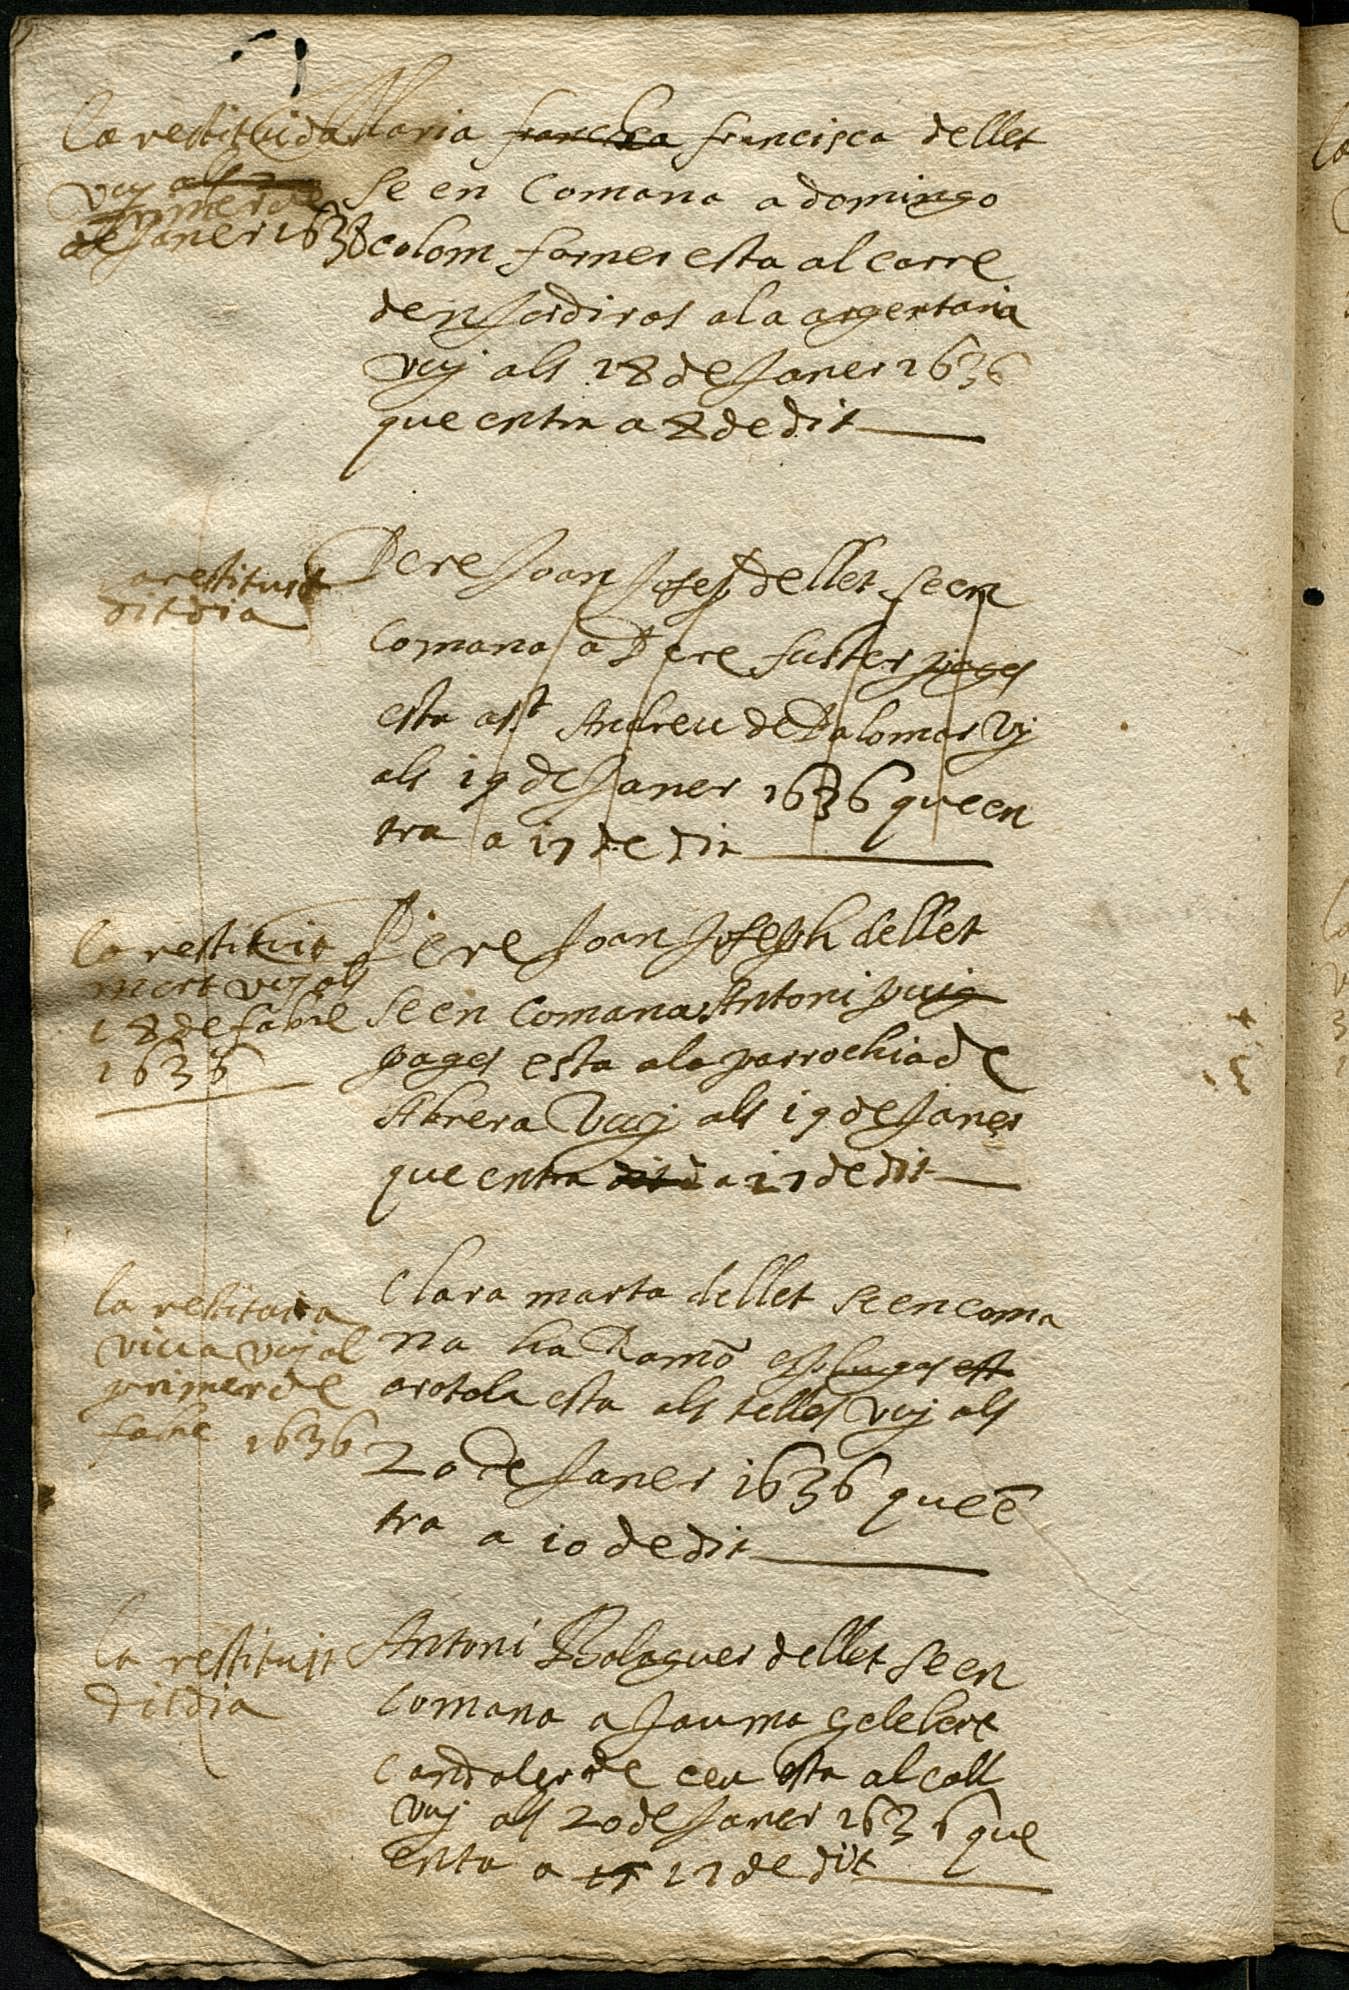 la restituida
vuy als
primer de
de Janer 1638
Maria francisca francisca de llet
se en Comana a domingo
colom forner esta al carre
den Jordi ras a la argentaria
vuy als 28 de Janer 1636
que entra a 8 de dit
a restituit
dit dia
Pere Joan Joseph de llet se en
Comana a Pere fuster pages
esta a St Andreu de Palomar vuy
als 19 de Janer 1636 que en
tra a 17 de dit
la restituit
mort vuy als
18 de fabre
1636
Pere Joan Joseph de llet
se en Comana Antoni puig
pages esta a la parrochia de
Abrera Vuy als 19 de Janer
que entra dit a 17 de dit
la restituida
viva vuy al
primer de
fabre 1636
Clara marta de llet se en coma
na ha Ramō esplugas est
arotola esta als tellos vuy als
20 de Janer 1636 que ē
tra a 10 de dit
la restituit
dit dia
Antoni Balaguer de llet se en
Comana a Jauma Gelebert
candaler de ceu esta al call
vuy als 20 de Janer 1636 que
enta a 17 17 de dit